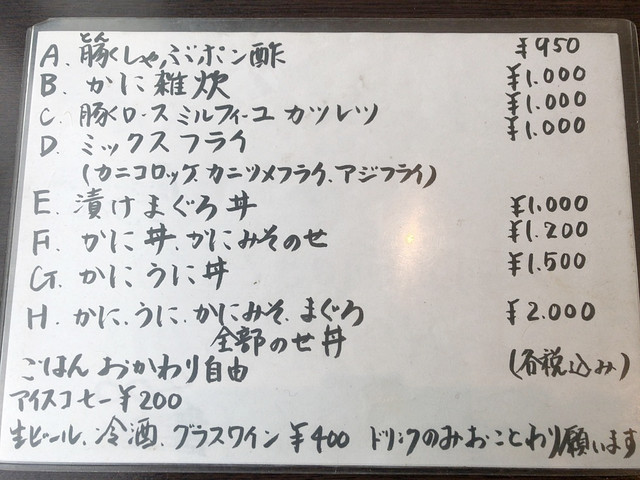 A. 豚しゃぶポン酢 ¥950
とん
B. かに雑炊 ¥1.000
C. 豚ロース ミルフィーユ カツレツ ¥1.000
D. ミックスフライ ¥1.000
(カニコロッケ.カニツメフライ.アジフライ)
E. 漬けまぐろ丼 ¥1.000
F. かに丼.かにみそのせ ¥1.200
G. かにうに丼 ¥1.500
H. かに.うに.かにみそ.まぐろ ¥2.000
全部のせ丼
ごはん おかわり自由 (各税込み)
アイスコヒー ¥200
生ビール.冷酒.グラスワイン ¥400 ドリンクのみおことわり願います